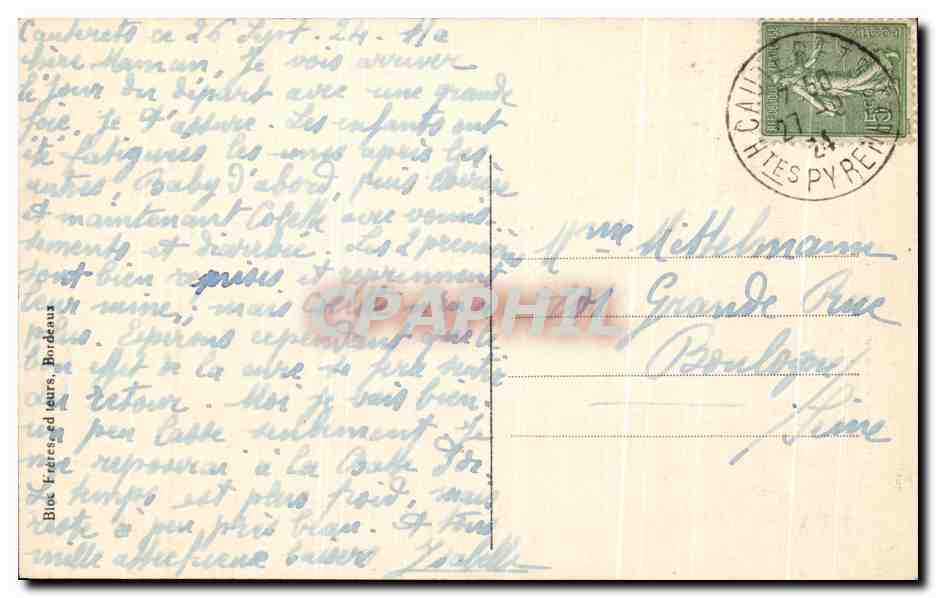 Cauterets ce 26 Sept. 24. Ma
chère Maman, Je vois arriver
le jour du départ avec une grande
joie, je t'assure. Les enfants ont
été fatigués les uns après les
autres, Baby d'abord, puis
et maintenant Colette avec vomis-
sements et diarrhée. Les 2 premiers
sont bien reprises et reprennent
leur mine, mais
Espérons cependant que le
bon effet de la cure se fera sentir
au retour. Moi je vais bien,
un peu lasse seulement. Je
me reposerai à la
Le temps est plus froid, mais
reste à peu près beau. A tous
mille affectueux baisers Isabelle
Mme Mittelmann
101 Grande Rue
Boulogne
Seine
CAUTERETS
27
24
HTES PYRENEES
CPAPHIL
Bloc Frères, éditeurs, Bordeaux